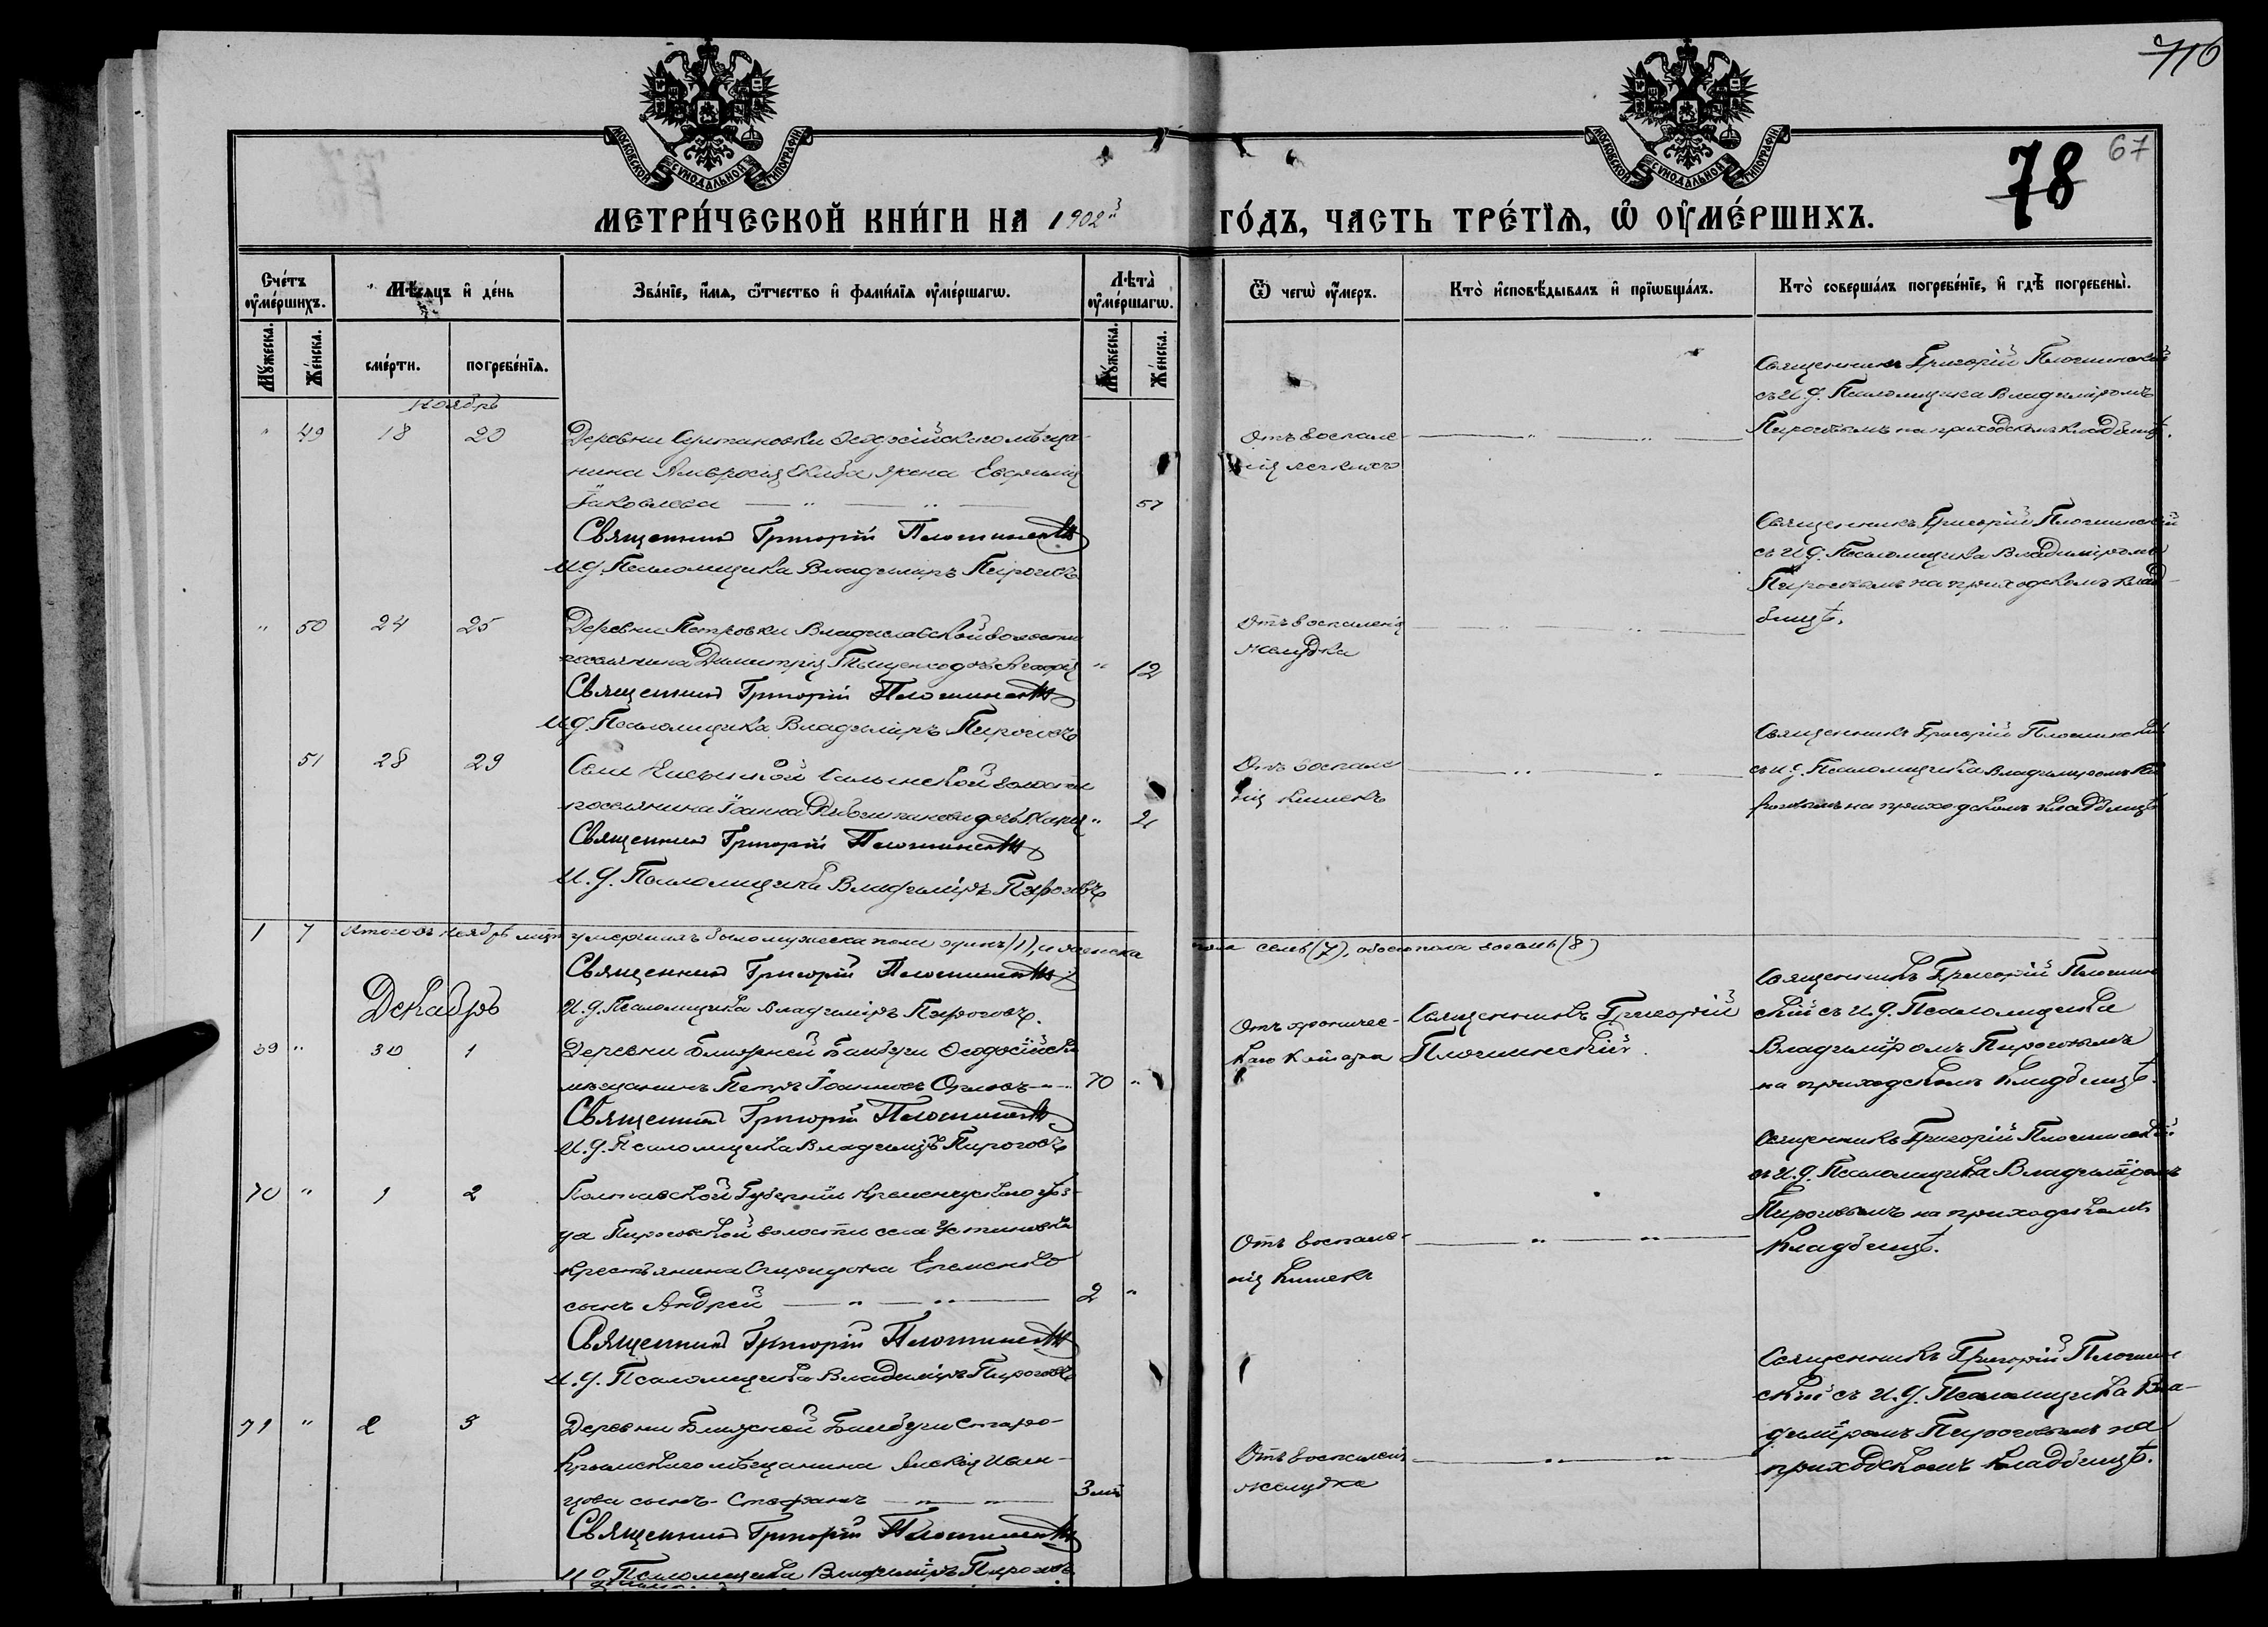 716
67
78
МОСКОВСКОЙ СѴНОДАЛЬНОЙ ТИПОГРАФІИ
МОСКОВСКОЙ СѴНОДАЛЬНОЙ ТИПОГРАФІИ
МЕТРИ́ЧЕСКОЙ КНИ́ГИ НА 1902й ГО́ДЪ, ЧАСТЬ ТРЕ́ТІѦ, Ѡ҆ ОУ҆МЕ́РШИХЪ.
Сче́тъ оу҆ме́ршихъ.
Мѣ́сяцъ и҆ де́нь
Зва́нїе, и҆́мѧ, ѻ҆́тчество и҆ фами́лїѧ оу҆ме́ршагѡ.
Лѣта̀ оу҆ме́ршагѡ.
Ѿ чегѡ̀ оу҆́меръ.
Кто̀ и҆сповѣ́дывалъ и҆ прїѡбща́лъ.
Кто̀ соверша́лъ погребе́нїе, и҆ гдѣ̀ погребены̀.
Мꙋ́жеска.
Же́нска.
сме́рти.
погребе́нїѧ.
Мꙋ́жеска.
Же́нска.
Ноябрь
" 49 18 20
Деревни Султановки Ѳеодосійскаго мѣща-
нина Амвросія Скиба жена Евфимія
Іаковлева — " — " —
57
Священникъ Григорій Плошинскій
И.д. Псаломщика Владиміръ Пироговъ
Отъ воспале-
нія легкихъ
Священникъ Григорій Плошинскій
съ И.д. Псаломщика Владиміромъ
Пироговымъ на приходскомъ кладбищѣ.
" 50 24 25
Деревни Петровки Владиславской волости
поселянина Димитрія дочь
" 12
Священникъ Григорій Плошинскій
И.д. Псаломщика Владиміръ Пироговъ
Отъ воспаленія
желудка
Священникъ Григорій Плошинскій
съ И.д. Псаломщика Владиміромъ
Пироговымъ на приходскомъ клад-
бищѣ.
51 28 29
Села волости
поселянина Іоанна дочь Марія
" 2
Священникъ Григорій Плошинскій
И.д. Псаломщика Владиміръ Пироговъ
Отъ воспале-
нія кишекъ
Священникъ Григорій Плошинскій
съ И.д. Псаломщика Владиміромъ Пи-
роговымъ на приходскомъ кладбищѣ
1 7 Итого въ Ноябрѣ мцѣ умершихъ было мужеска пола одинъ (1), и женска пола семь (7), обоего пола восемь (8)
Священникъ Григорій Плошинскій
И.д. Псаломщика Владиміръ Пироговъ.
Декабрь
69 " 30 1
Деревни Ближней Байбуги Ѳеодосійскій
мѣщанинъ Петръ Іоанновъ Орловъ — " —
70 "
Священникъ Григорій Плошинскій
И.д. Псаломщика Владиміръ Пироговъ
Отъ хроничес-
каго катарра
Священникъ Григорій
Плошинскій.
Священникъ Григорій Плошин-
скій съ И.д. Псаломщика
Владиміромъ Пироговымъ
на приходскомъ кладбищѣ.
70 " 1 2
Полтавской Губерніи Кременчугскаго уѣз-
да Пироговской волости села Устиновки
крестьянина Спиридона Еременко
сынъ Андрей — " — " —
2 "
Священникъ Григорій Плошинскій
И.д. Псаломщика Владиміръ Пироговъ
Отъ воспале-
нія кишекъ
Священникъ Григорій Плошинскій
съ И.д. Псаломщика Владиміромъ
Пироговымъ на приходскомъ
кладбищѣ.
71 " 2 3
Деревни Ближней Байбуги Старо-
крымскаго мѣщанина Алексія Иван-
цова сынъ Стефанъ — " — " —
3 мѣ
Священникъ Григорій Плошинскій
И.д. Псаломщика Владиміръ Пироговъ
Отъ воспаленія
желудка
Священникъ Григорій Плошин-
скій съ И.д. Псаломщика Вла-
диміромъ Пироговымъ на
приходскомъ кладбищѣ.